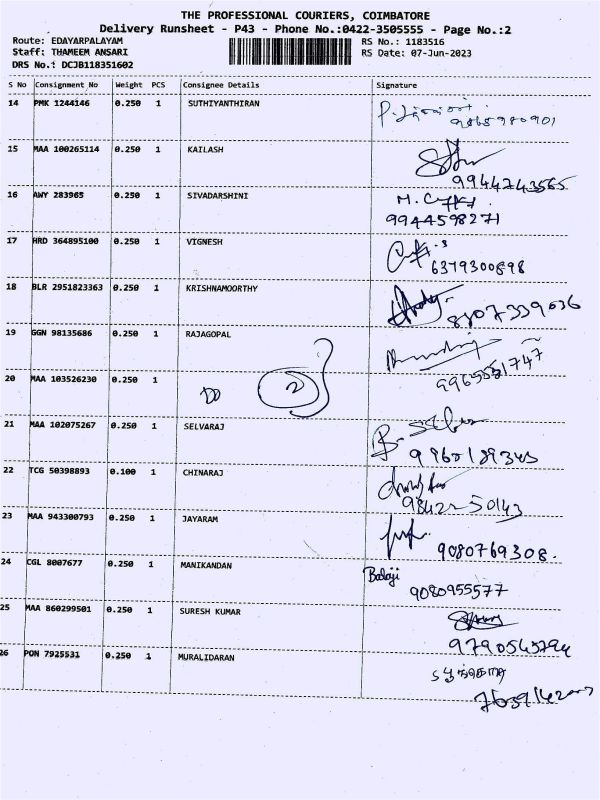 THE PROFESSIONAL COURIERS, COIMBATORE
Delivery Runsheet - P43 - Phone No.:0422-3505555 - Page No.:2
Route: EDAYARPALAYAM
Staff: THAMEEM ANSARI
DRS No.: DCJB118351602
RS No.: 1183516
RS Date: 07-Jun-2023
S No Consignment No Weight PCS Consignee Details Signature
14 PMK 1244146 0.250 1 SUTHIYANTHIRAN
15 MAA 100265114 0.250 1 KAILASH
9944743565
16 AWY 283965 0.250 1 SIVADARSHINI
9944598271
17 HRD 364895100 0.250 1 VIGNESH
6379300898
18 BLR 2951823363 0.250 1 KRISHNAMOORTHY
8807339036
19 GGN 98135686 0.250 1 RAJAGOPAL
20 MAA 103526230 0.250 1 DO 2
9965551747
21 MAA 102075267 0.250 1 SELVARAJ
22 TCG 50398893 0.100 1 CHINARAJ
98422-50143
23 MAA 943300793 0.250 1 JAYARAM
9080769308.
24 CGL 8007677 0.250 1 MANIKANDAN
Balaji
9080955577
25 MAA 860299501 0.250 1 SURESH KUMAR
9790545794
26 PON 7925531 0.250 1 MURALIDARAN